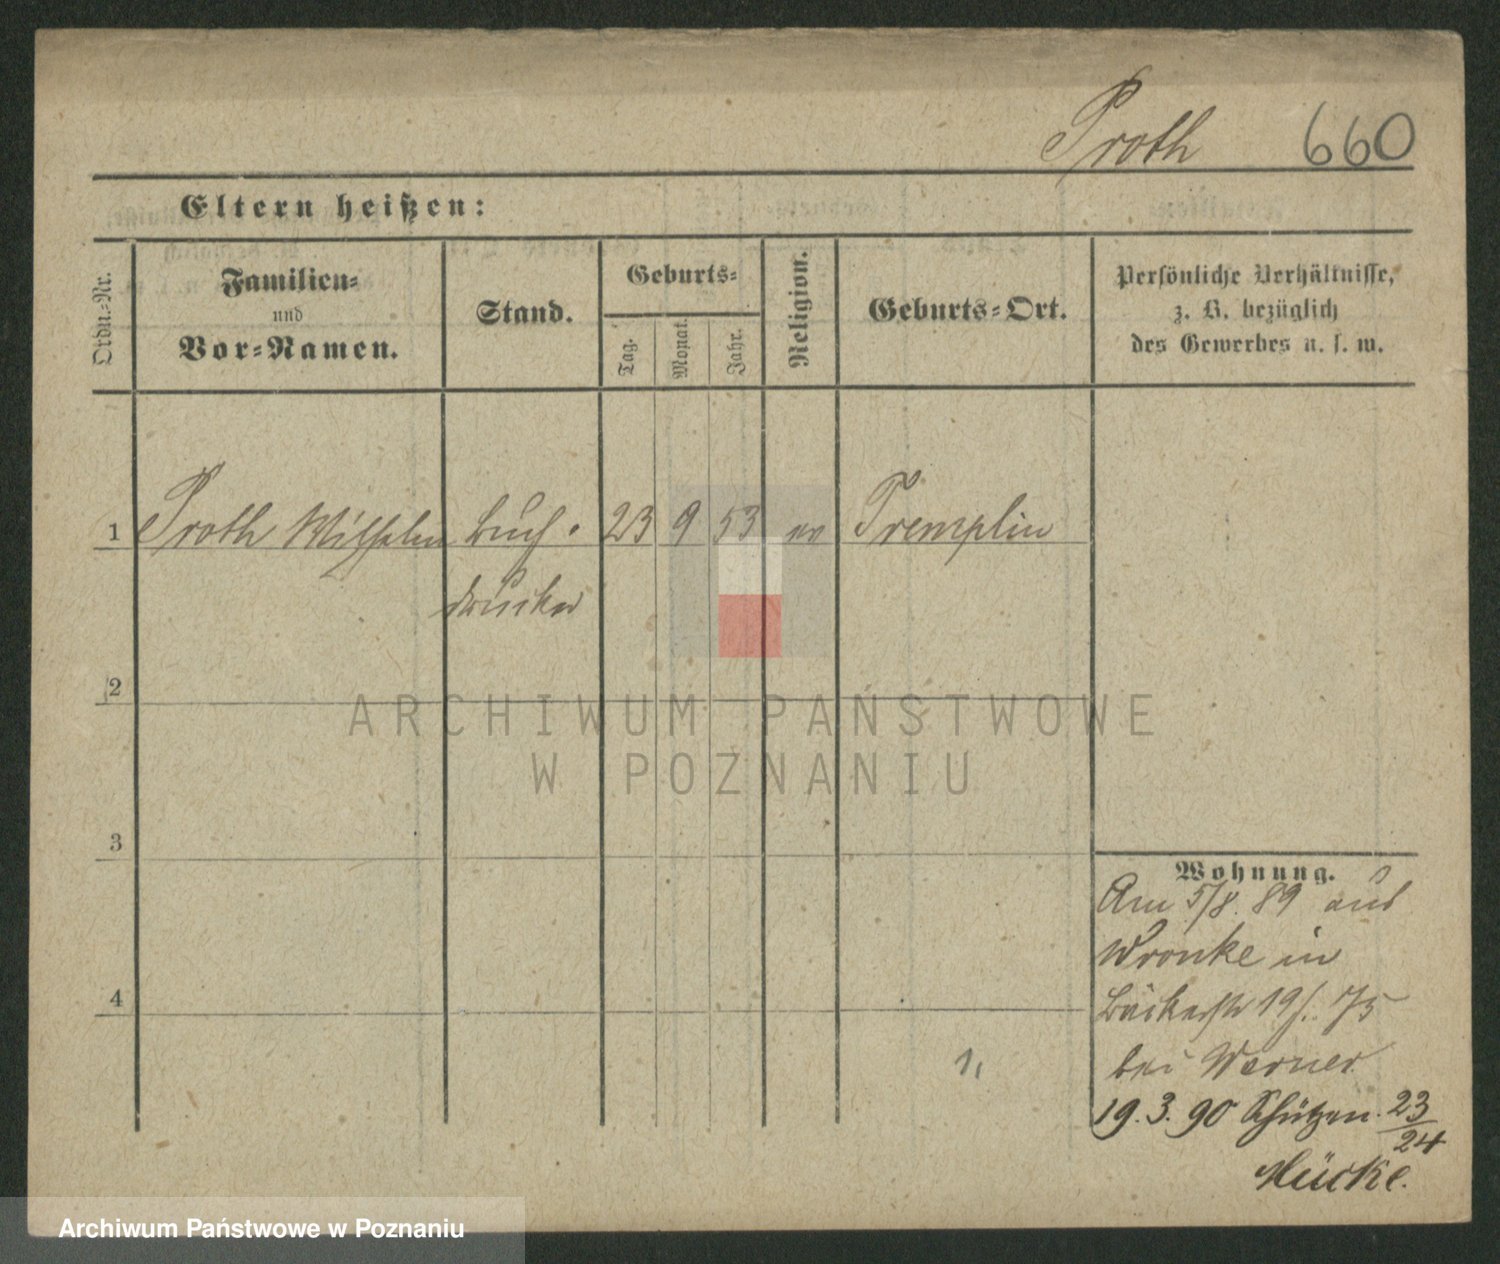 Proth 660
Eltern heißen:
Ordn.-Nr.
Familien-
und
Vor-Namen.
Stand.
Geburts-
Tag.
Monat.
Jahr.
Religion.
Geburts-Ort.
Persönliche Verhältnisse,
z. B. bezüglich
des Gewerbes u. s. w.
1 Proth Wilhelm Buch- 23 9 53 ev Templin
drucker
2
3
4
Wohnung.
Am 5/8. 89 aus
Wronke in
Bäckerstr 19/. 75
bei Werner
19. 3. 90 Schützen. 23/24
Mücke.
1,
ARCHIWUM PAŃSTWOWE
W POZNANIU
Archiwum Państwowe w Poznaniu